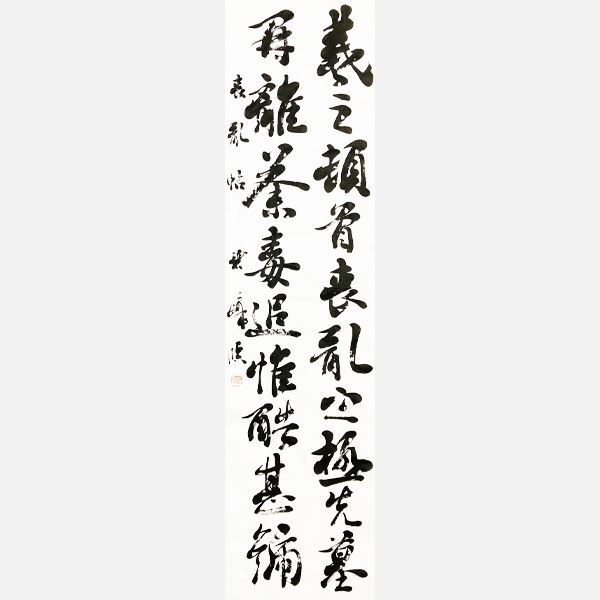 羲之頓首喪亂之極先墓
再離荼毒追惟酷甚號
喪亂帖 臨